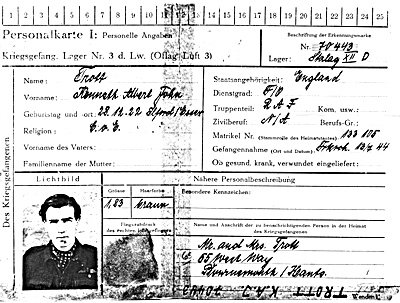 1 2 3 4 5 6 7 8 9 10 11 12 13 14 15 16 17 18 19 20 21 22 23 24 25
Personalkarte I: Personelle Angaben
Kriegsgefang. Lager Nr. 3 d. Lw. (Oflag Luft 3)
Beschriftung der Erkennungsmarke
Nr. 70443
Lager: Stalag XII D
Des Kriegsgefangenen
Name: Trott
Vorname: Kenneth Albert John
Geburtstag und -ort: 28.12.22
Religion: C. o. E.
Vorname des Vaters:
Familienname der Mutter:
Staatsangehörigkeit: England
Dienstgrad: F/O
Truppenteil: R.A.F Kom. usw.:
Zivilberuf: N/A Berufs-Gr.:
Matrikel Nr. (Stammrolle des Heimatstaates): 133 105
Gefangennahme (Ort und Datum): 44
Ob gesund, krank, verwundet eingeliefert:
Lichtbild
Nähere Personalbeschreibung
Grösse
Haarfarbe
Besondere Kennzeichen:
1,83
braun
Fingerabdruck
des rechten
Name und Anschrift der zu benachrichtigenden Person in der Heimat
des Kriegsgefangenen
Mr. and Mrs. Trott
55 West Way
Bournemouth / Hants.
TROTT K.A.J. 70443
Wenden!